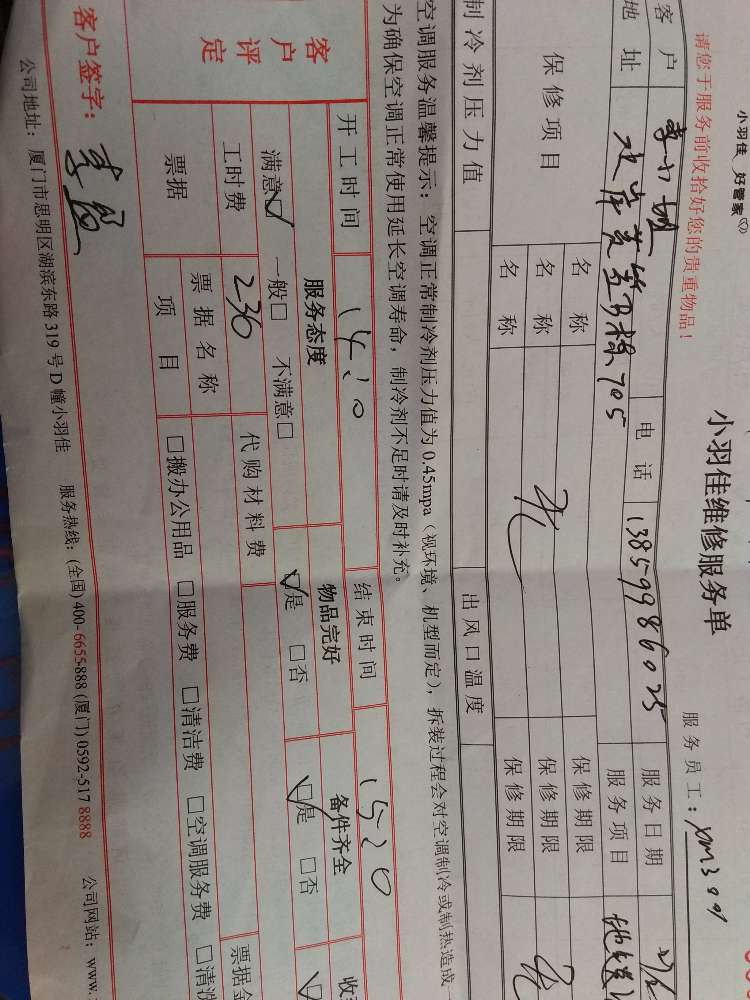 小羽佳 好管家
小羽佳维修服务单
请您于服务前收拾好您的贵重物品！
服务员工：xm399
客户 电话 13859986025 服务日期
地址 705 服务项目
保修项目 名称 保修期限
名称 无 保修期限 无
名称 保修期限
制冷剂压力值 出风口温度
空调服务温馨提示：空调正常制冷剂压力值为0.45mpa（视环境、机型而定），拆装过程会对空调制冷或制热造成一
为确保空调正常使用延长空调寿命，制冷剂不足时请及时补充。
开工时间 14:20 结束时间 15:20
客户评定 服务态度 物品完好 备件齐全
满意☑ 一般□ 不满意□ ☑是 □否 ☑是 □否
工时费 236 代购材料费
票据 票据名称 票据金
项目 □搬办公用品 □服务费 □清洁费 □空调服务费 □清洗
客户签字：
公司地址：厦门市思明区湖滨东路319号D幢小羽佳 服务热线：(全国)400-6655-888 (厦门)0592-517 8888 公司网站：www.